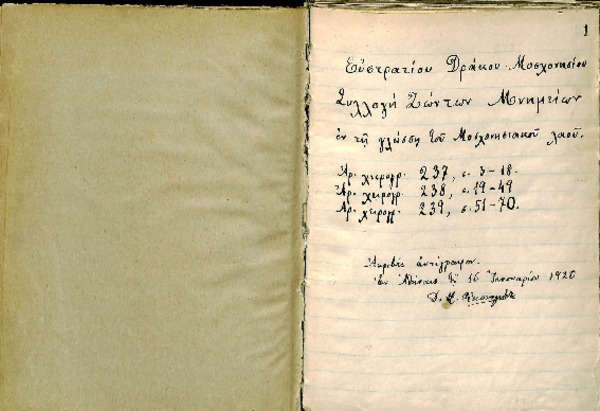 1
Εὐστρατίου Δράκου Μοσχονησίου
Συλλογὴ Ζώντων Μνημείων
ἐν τῇ γλώσσῃ τοῦ Μοσχονησιακοῦ λαοῦ.
Ἀρ. χειρογρ. 237, σ. 3-18.
Ἀρ. χειρογρ. 238, σ. 19-49
Ἀρ. χειρογρ. 239, σ. 51-70.
Ἀκριβὲς ἀντίγραφον.
Ἐν Ἀθήναις τῇ 16 Ἰανουαρίου 1920